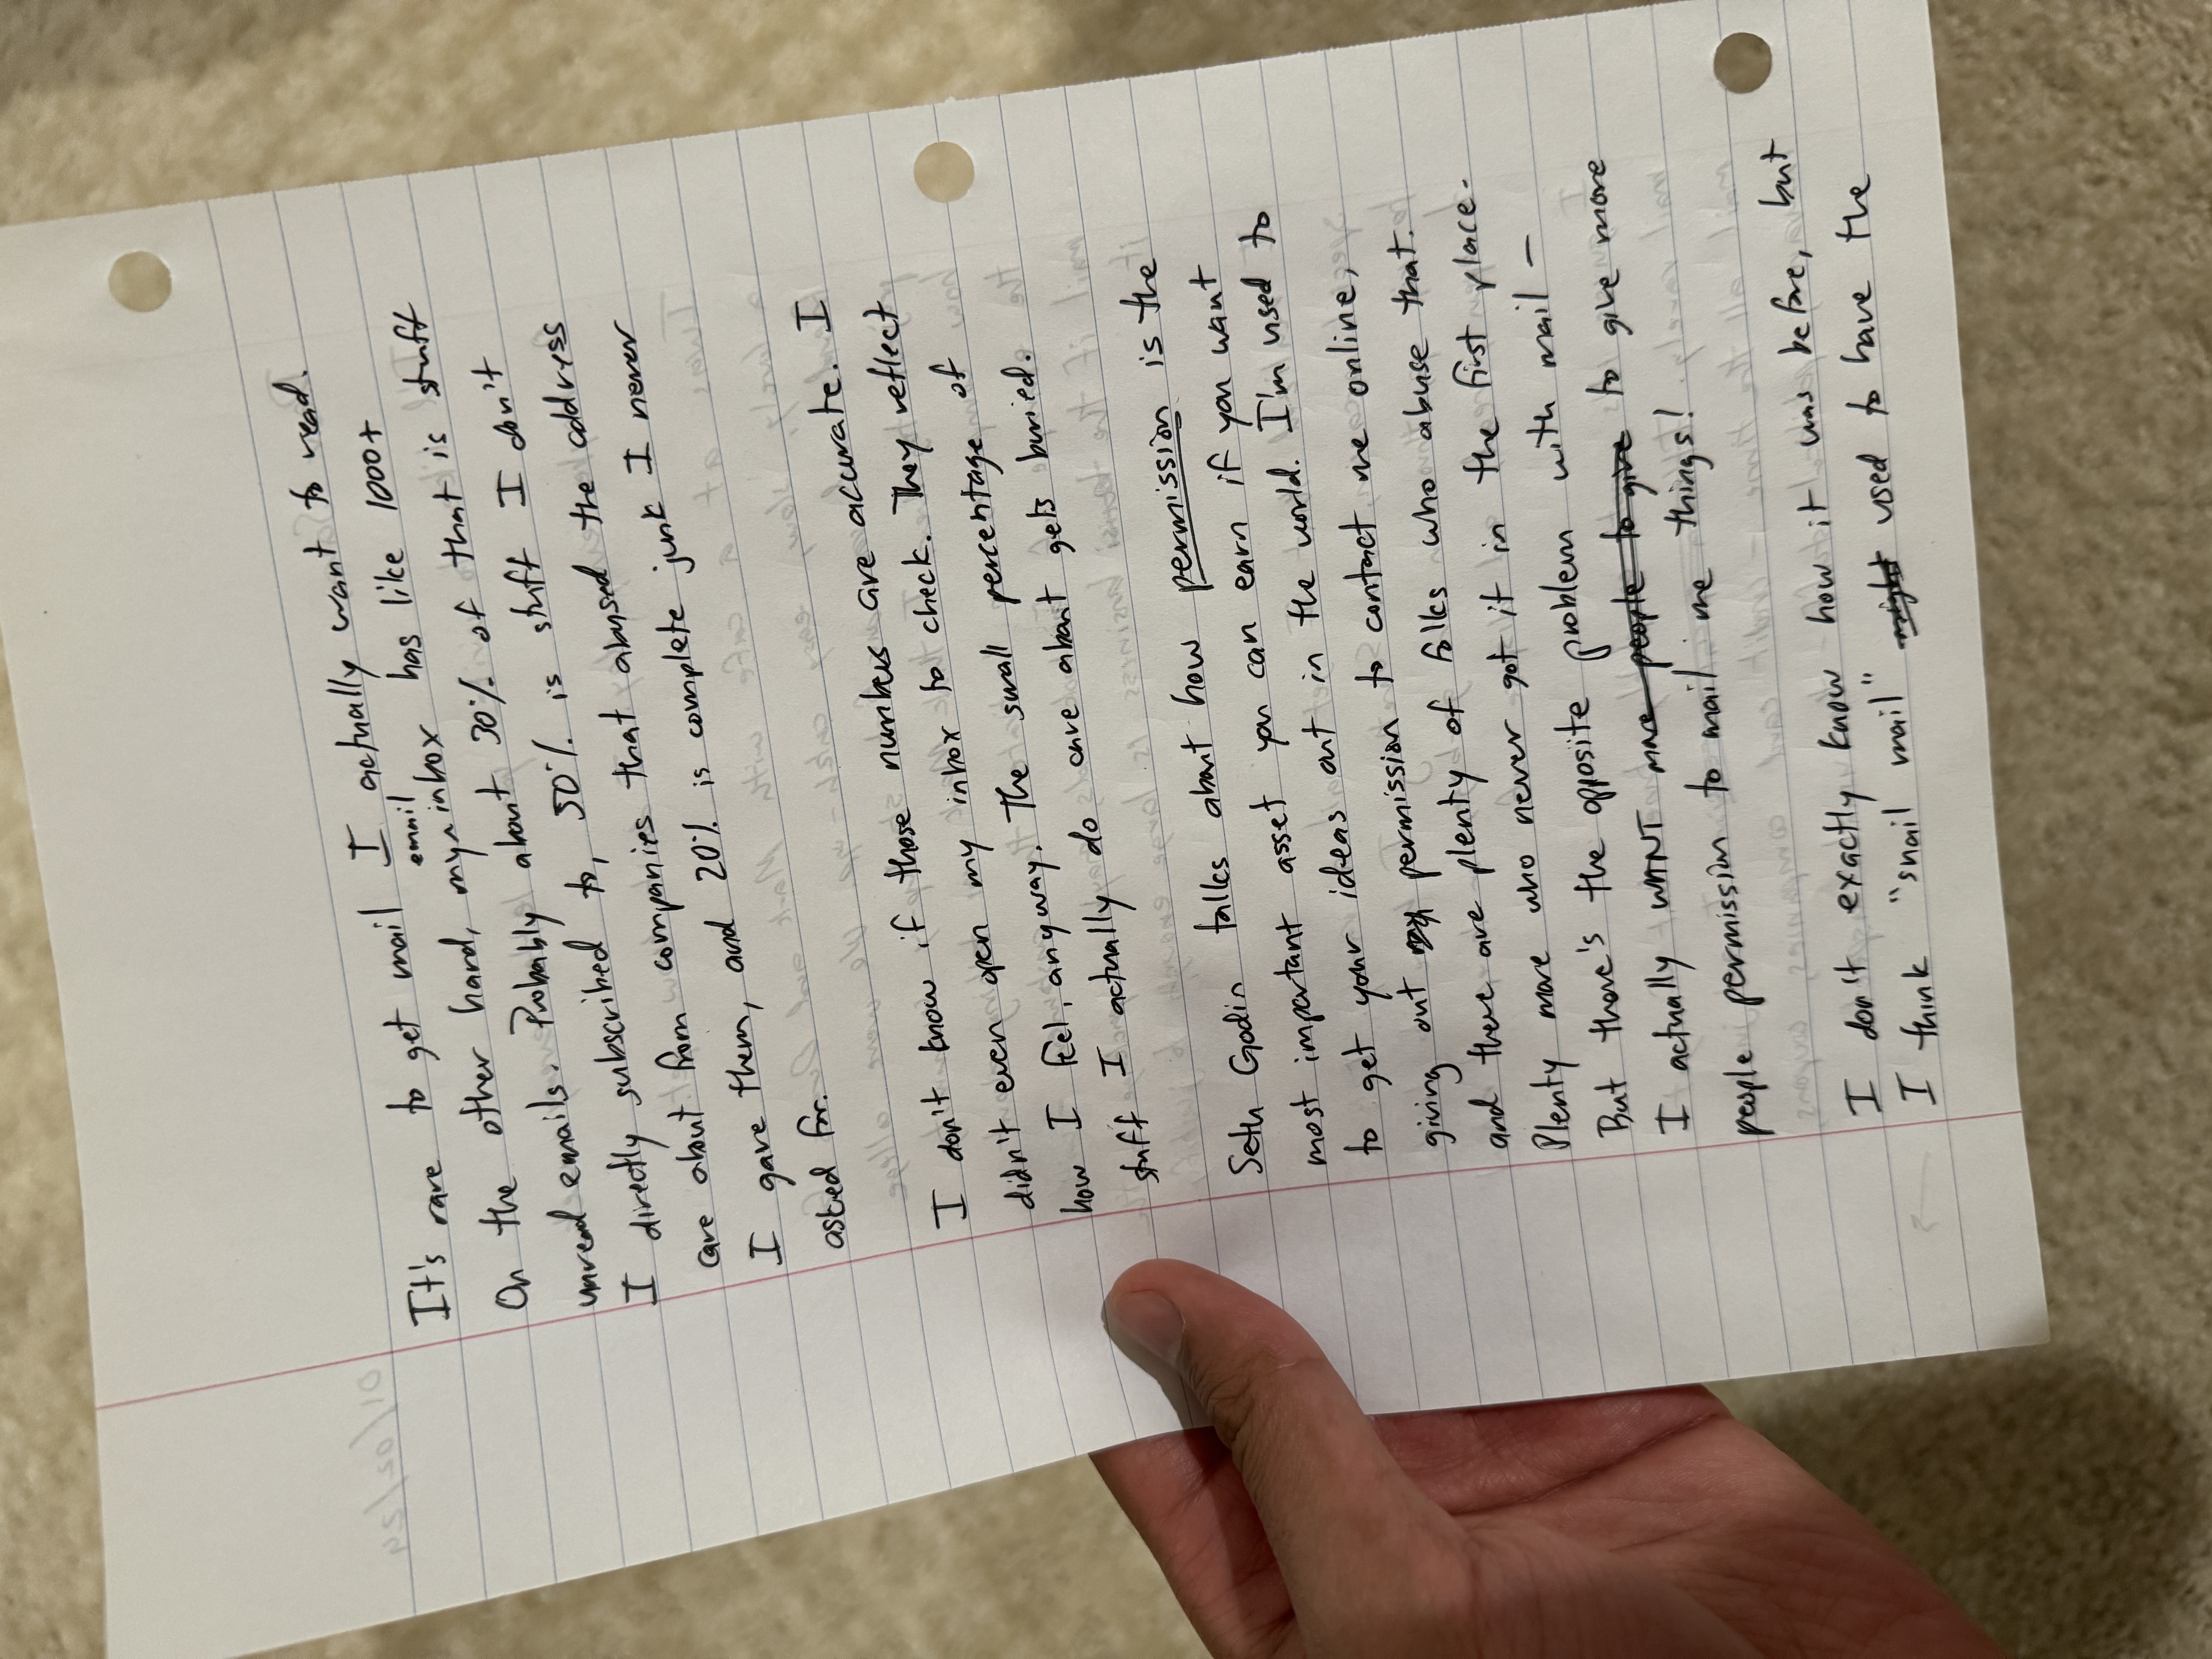 It's rare to get mail I actually want to read.
On the other hand, my email inbox has like 1000+
unread emails. Probably about 30% of that is stuff
I directly subscribed to, 50% is stuff I don't
care about from companies that abused the address
I gave them, and 20% is complete junk I never
asked for.
I don't know if those numbers are accurate. I
didn't even open my inbox to check. They reflect
how I feel, anyway. The small percentage of
stuff I actually do care about gets buried.
Seth Godin talks about how permission is the
most important asset you can earn if you want
to get your ideas out in the world. I'm used to
giving out my permission to contact me online,
and there are plenty of folks who abuse that.
Plenty more who never got it in the first place.
But there's the opposite problem with mail –
I actually WANT more people to give to give more
people permission to mail me things!
I don't exactly know how it was before, but
I think "snail mail" might used to have the
01/02/24